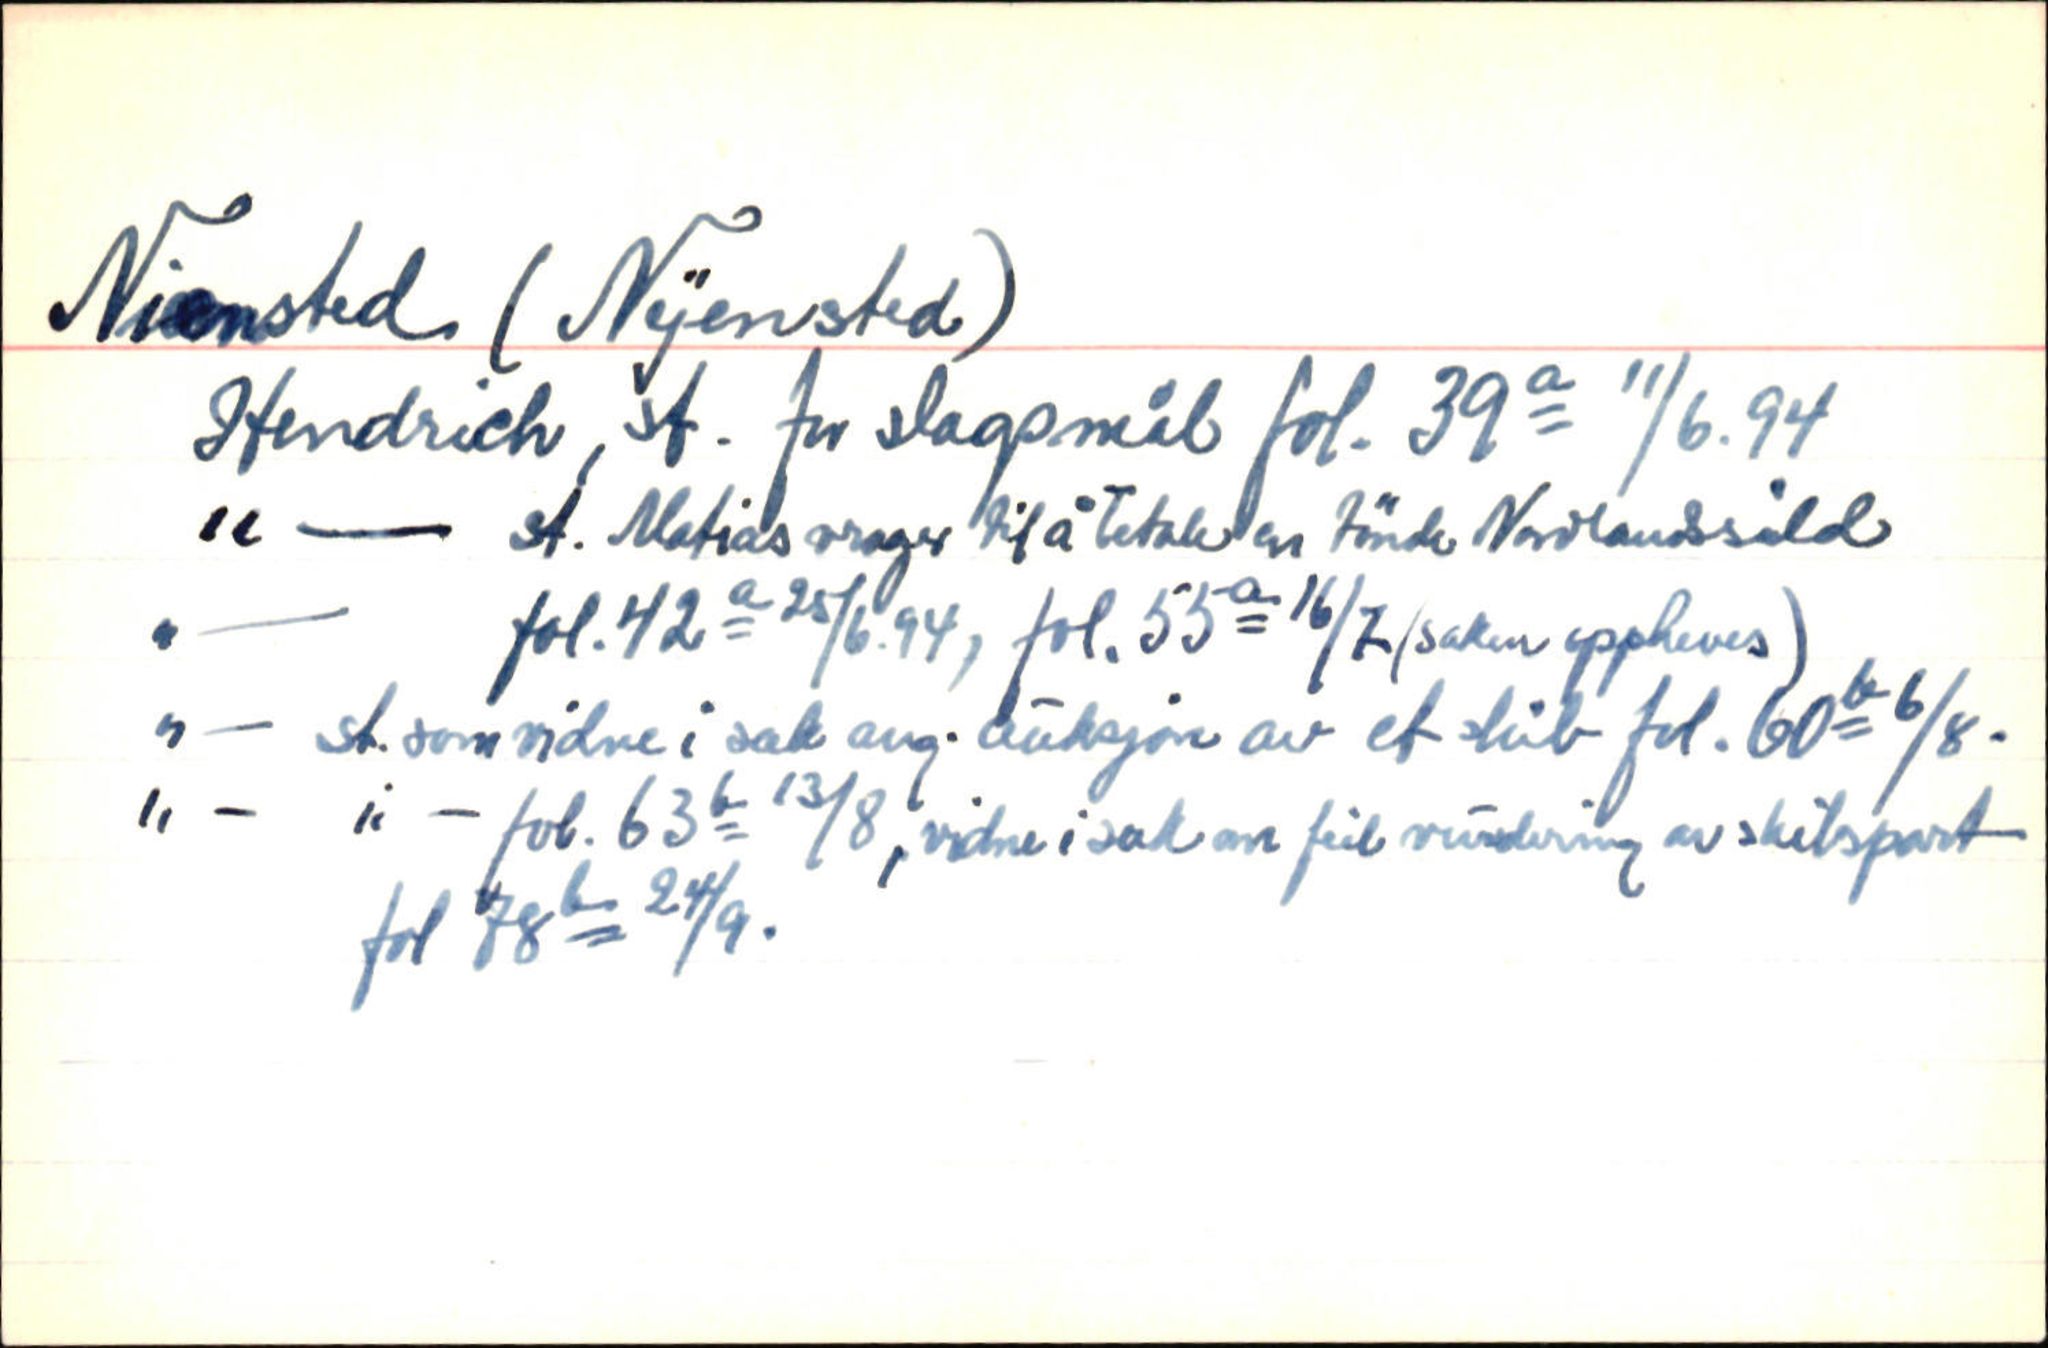 Niensted (Nÿensted)
Hendrich, st. for slagsmål fol. 39a 11/6.94
" — st. Matias vrager til å betale en tönde Nordlandssild
" — fol. 42a 25/6.94, fol. 55a 16/7 (saken oppheves)
" — st. som vidne i sak ang. auksjon av et skib fol. 60b 6/8.
" — " — fol. 63b 13/8, vidne i sak om feil vurdering av skibspart
fol 78b 24/9.